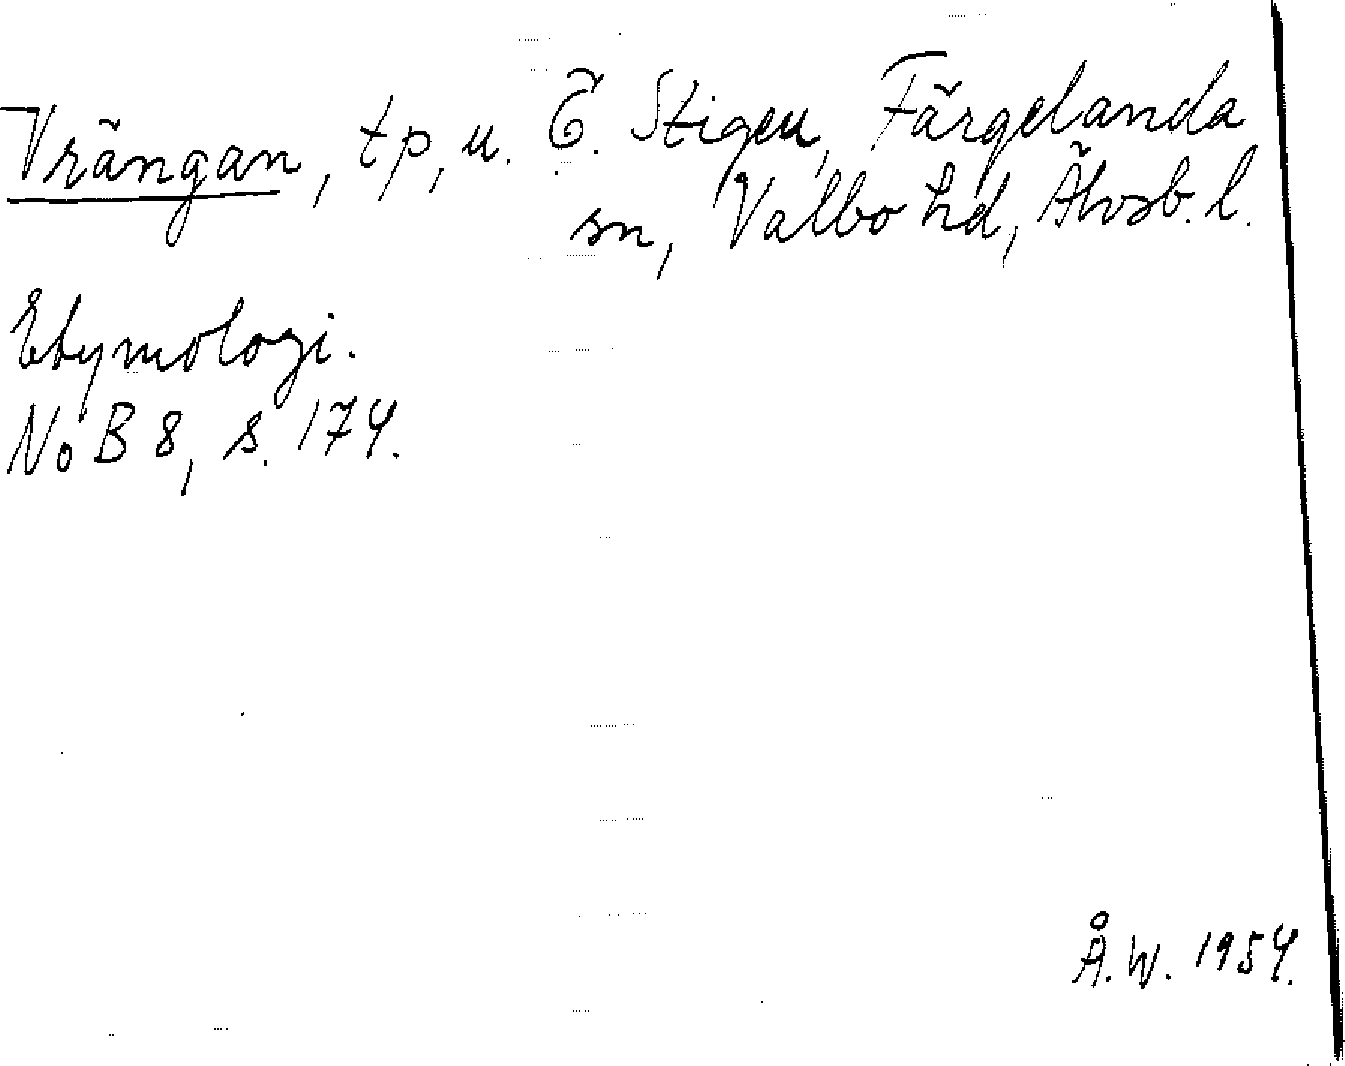 Vrängan, tp, u. Ö. Stigen, Färgelanda
sn, Valbo hd, Älvsb. l.
Etymologi.
NoB 8, s. 174.
Å. W. 1954.